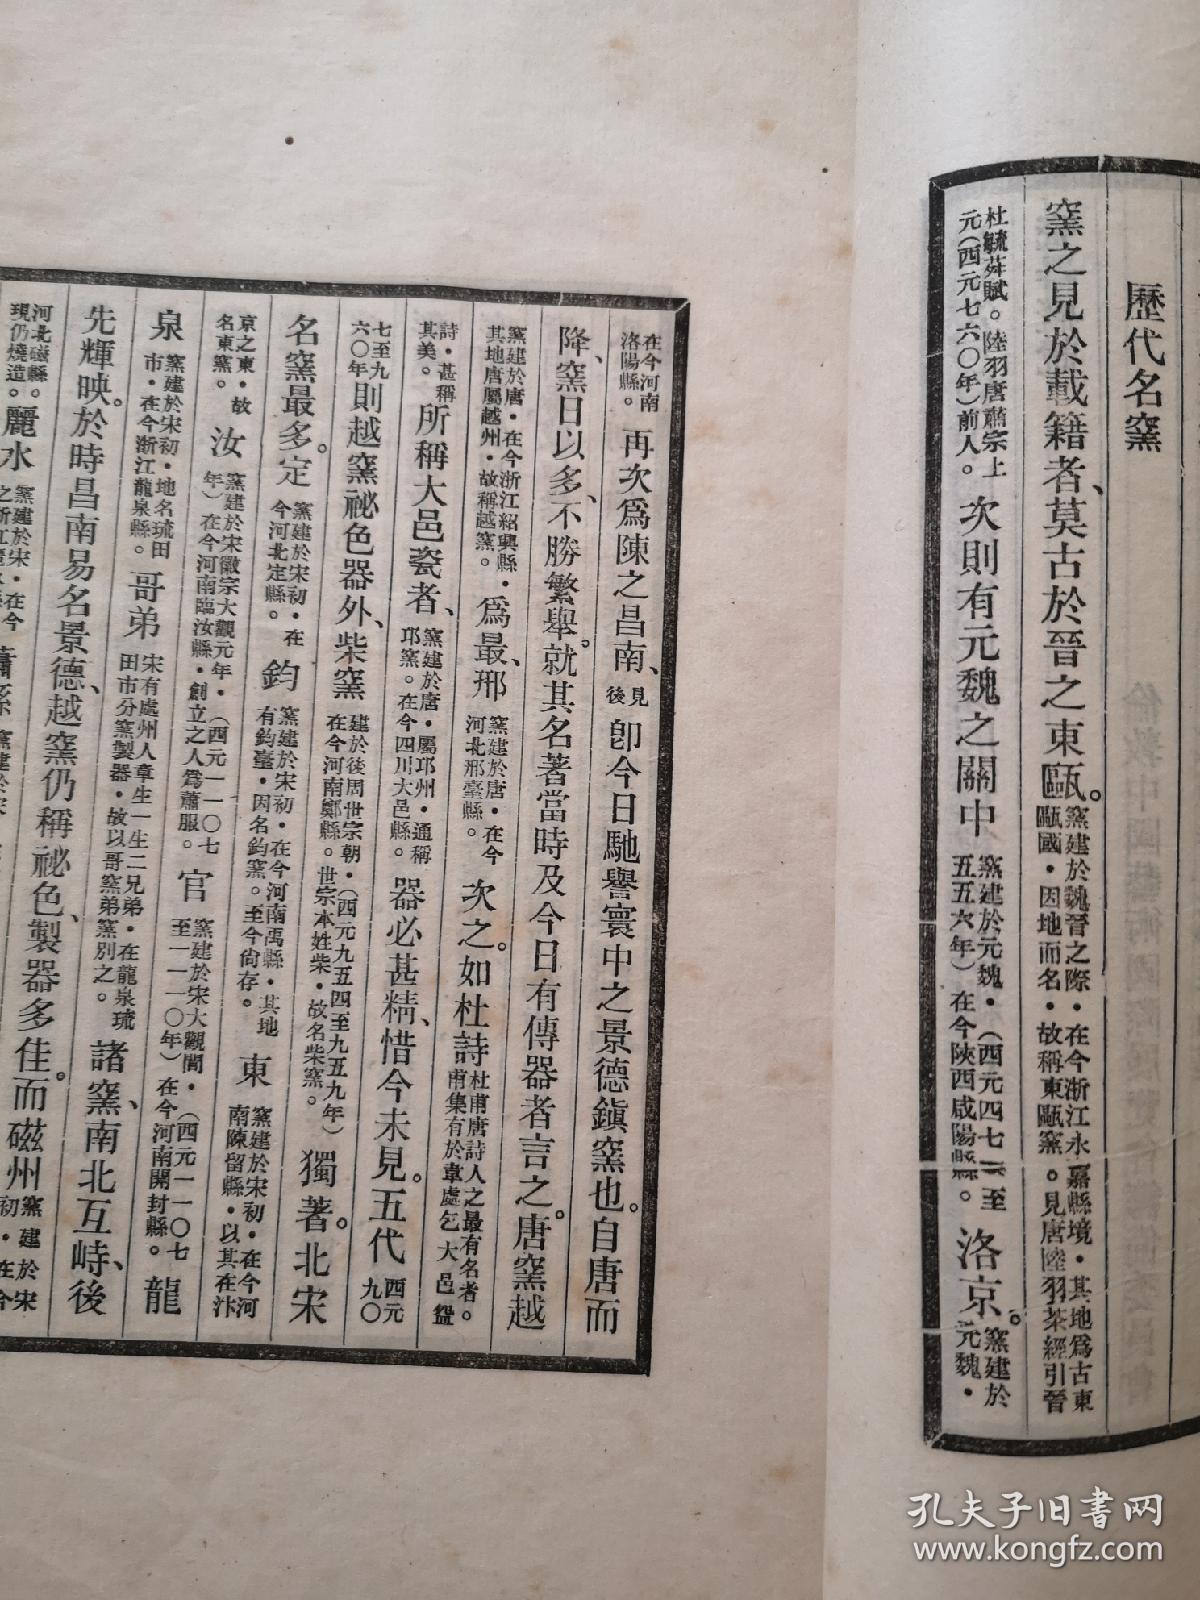 歷代名窯
窯之見於載籍者、莫古於晉之東甌。窯建於魏晉之際·在今浙江永嘉縣境·其地爲古東甌國·因地而名·故稱東甌窯。見唐陸羽茶經引晉
杜毓荈賦。陸羽唐肅宗上元(西元七六〇年)前人。次則有元魏之關中窯建於元魏·(西元四七一至五五六年)在今陝西咸陽縣。洛京。窯建於元魏·
在今河南洛陽縣。再次爲陳之昌南、見後卽今日馳譽寰中之景德鎮窯也。自唐而
降、窯日以多、不勝繁舉。就其名著當時及今日有傳器者言之。唐窯越
窯建於唐·在今浙江紹興縣·其地唐屬越州·故稱越窯。爲最、邢窯建於唐·在今河北邢臺縣。次之。如杜詩杜甫唐詩人之最有名者。甫集有於韋處乞大邑盌
詩·甚稱其美。所稱大邑瓷者、窯建於唐·屬邛州·通稱邛窯。在今四川大邑縣。器必甚精、惜今未見。五代西元九〇
七至九六〇年則越窯祕色器外、柴窯建於後周世宗朝·(西元九五四至九五九年)在今河南鄭縣。世宗本姓柴·故名柴窯。獨著。北宋
名窯最多。定窯建於宋初·在今河北定縣。鈞窯建於宋初·在今河南禹縣·其地有鈞臺·因名鈞窯。至今尙存。東窯建於宋初·在今河南陳留縣·以其在汴
京之東·故名東窯。汝窯建於宋徽宗大觀元年·(西元一一〇七年)在今河南臨汝縣·創立之人爲蕭服。官窯建於宋大觀間·(西元一一〇七至一一一〇年)在今河南開封縣。龍
泉窯建於宋初·地名琉田市·在今浙江龍泉縣。哥弟宋有處州人章生一生二兄弟·在龍泉琉田市分窯製器·故以哥窯弟窯別之。諸窯、南北互峙、後
先輝映。於時昌南易名景德、越窯仍稱祕色、製器多佳。而磁州窯建於宋初·在今
河北磁縣。現仍燒造。麗水窯建於宋·在今
孔夫子旧书网
www.kongfz.com